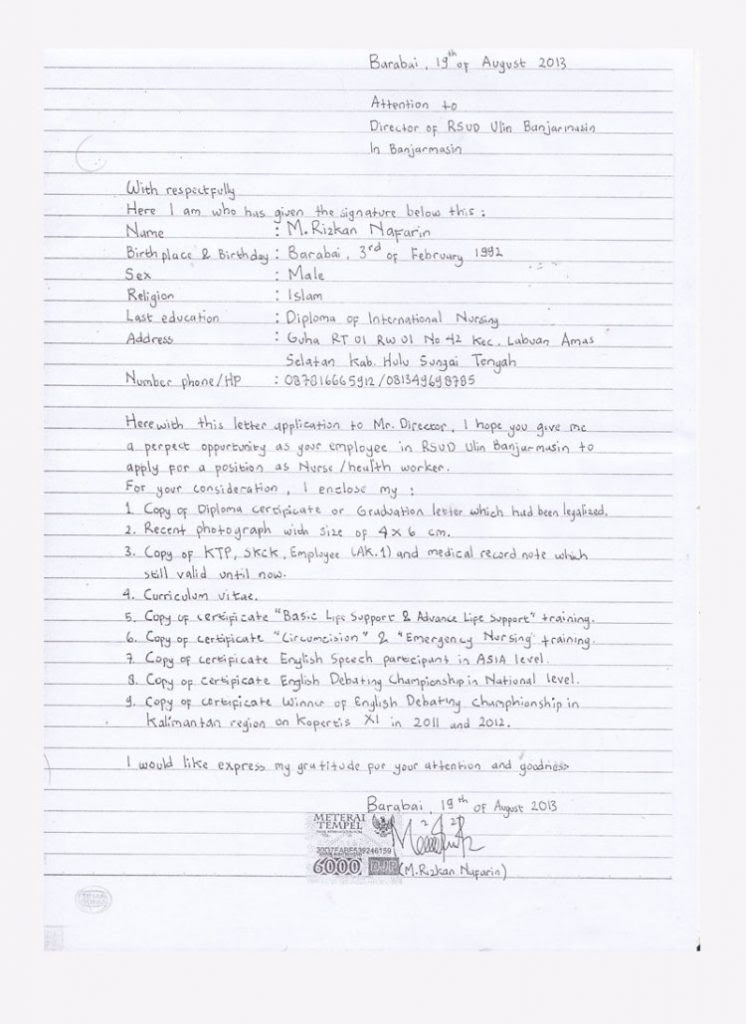 Barabai, 19th of August 2013
Attention to
Director of RSUD Ulin Banjarmasin
In Banjarmasin
With respectfully
Here I am who has given the signature below this :
Name : M. Rizkan Nafarin
Birthplace & Birthday : Barabai, 3rd of February 1992
Sex : Male
Religion : Islam
Last education : Diploma of International Nursing
Address : Guha RT 01 RW 01 No 42 Kec. Labuan Amas
Selatan Kab. Hulu Sungai Tengah
Number phone/HP : 087816665912 /081349698785
Herewith this letter application to Mr. Director, I hope you give me
a perpect opportunity as your employee in RSUD Ulin Banjarmasin to
apply for a position as Nurse /health worker.
For your consideration, I enclose my :
1. Copy of Diploma certificate or Graduation letter which had been legalized.
2. Recent photograph with size of 4 x 6 cm.
3. Copy of KTP, SKCK, Employee (AK.1) and medical record note which
still valid until now.
4. Curriculum vitae.
5. Copy of certificate "Basic Life Support & Advance Life Support" training.
6. Copy of certificate "Circumcision" & "Emergency Nursing" training.
7. Copy of certificate English Speech participant in ASIA level.
8. Copy of certificate English Debating Championship in National level.
9. Copy of certificate Winner of English Debating Champhionship in
Kalimantan region on Kopertis XI in 2011 and 2012.
I would like express my gratitude for your attention and goodness
Barabai, 19th of August 2013
METERAI
TEMPEL
6000 DJP
(M. Rizkan Nafarin)